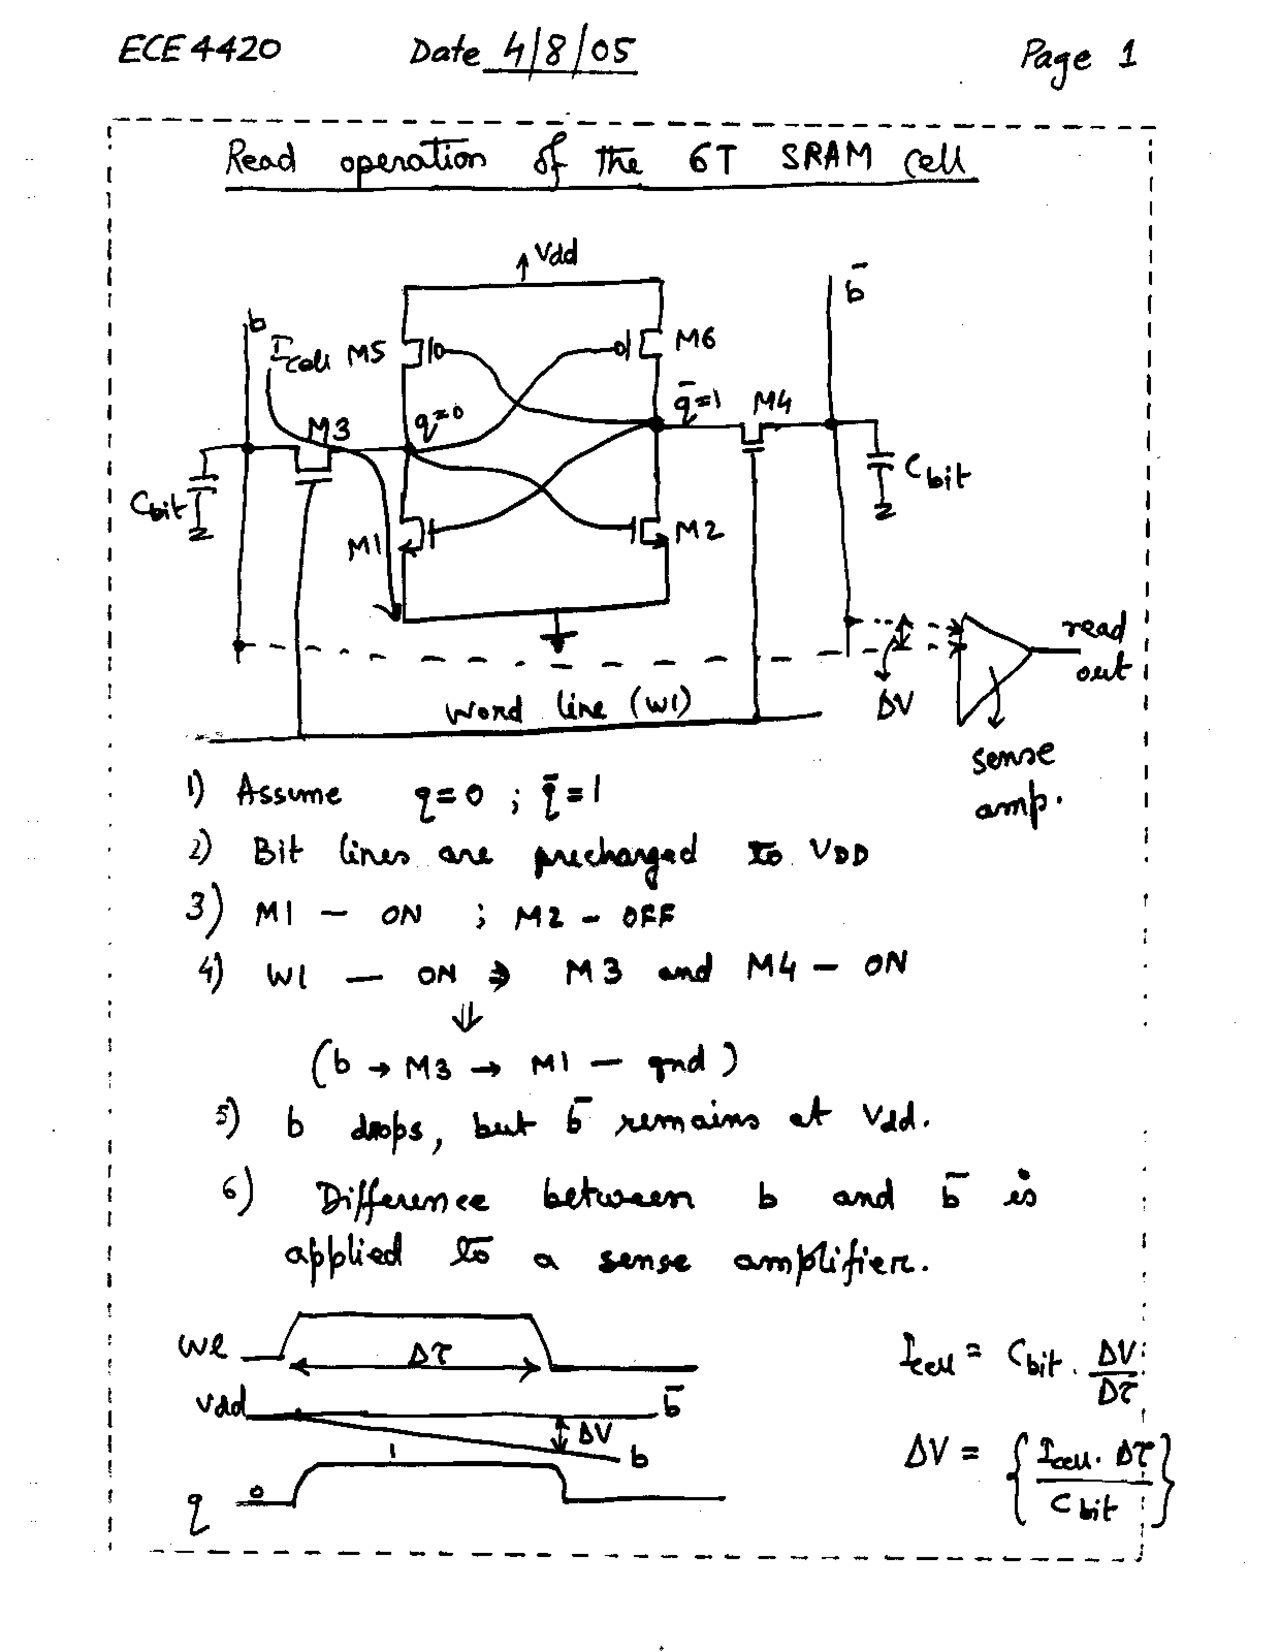 ECE 4420 Date 4/8/05 Page 1
Read operation of the 6T SRAM cell
Vdd
b̄
b
Icell M5
M6
q=0
q̄=1
M4
M3
Cbit
Cbit
M1
M2
read
out
ΔV
Word line (wl)
sense
amp.
1) Assume q=0 ; q̄=1
2) Bit lines are precharged to VDD
3) M1 — ON ; M2 - OFF
4) Wl — ON ⇒ M3 and M4 — ON
⇓
(b → M3 → M1 — gnd)
5) b drops, but b̄ remains at Vdd.
6) Difference between b and b̄ is
applied to a sense amplifier.
wl Δτ
Vdd b̄
ΔV
b
1
q 0
Icell = Cbit . ΔV/Δτ
ΔV = { Icell . Δτ / Cbit }